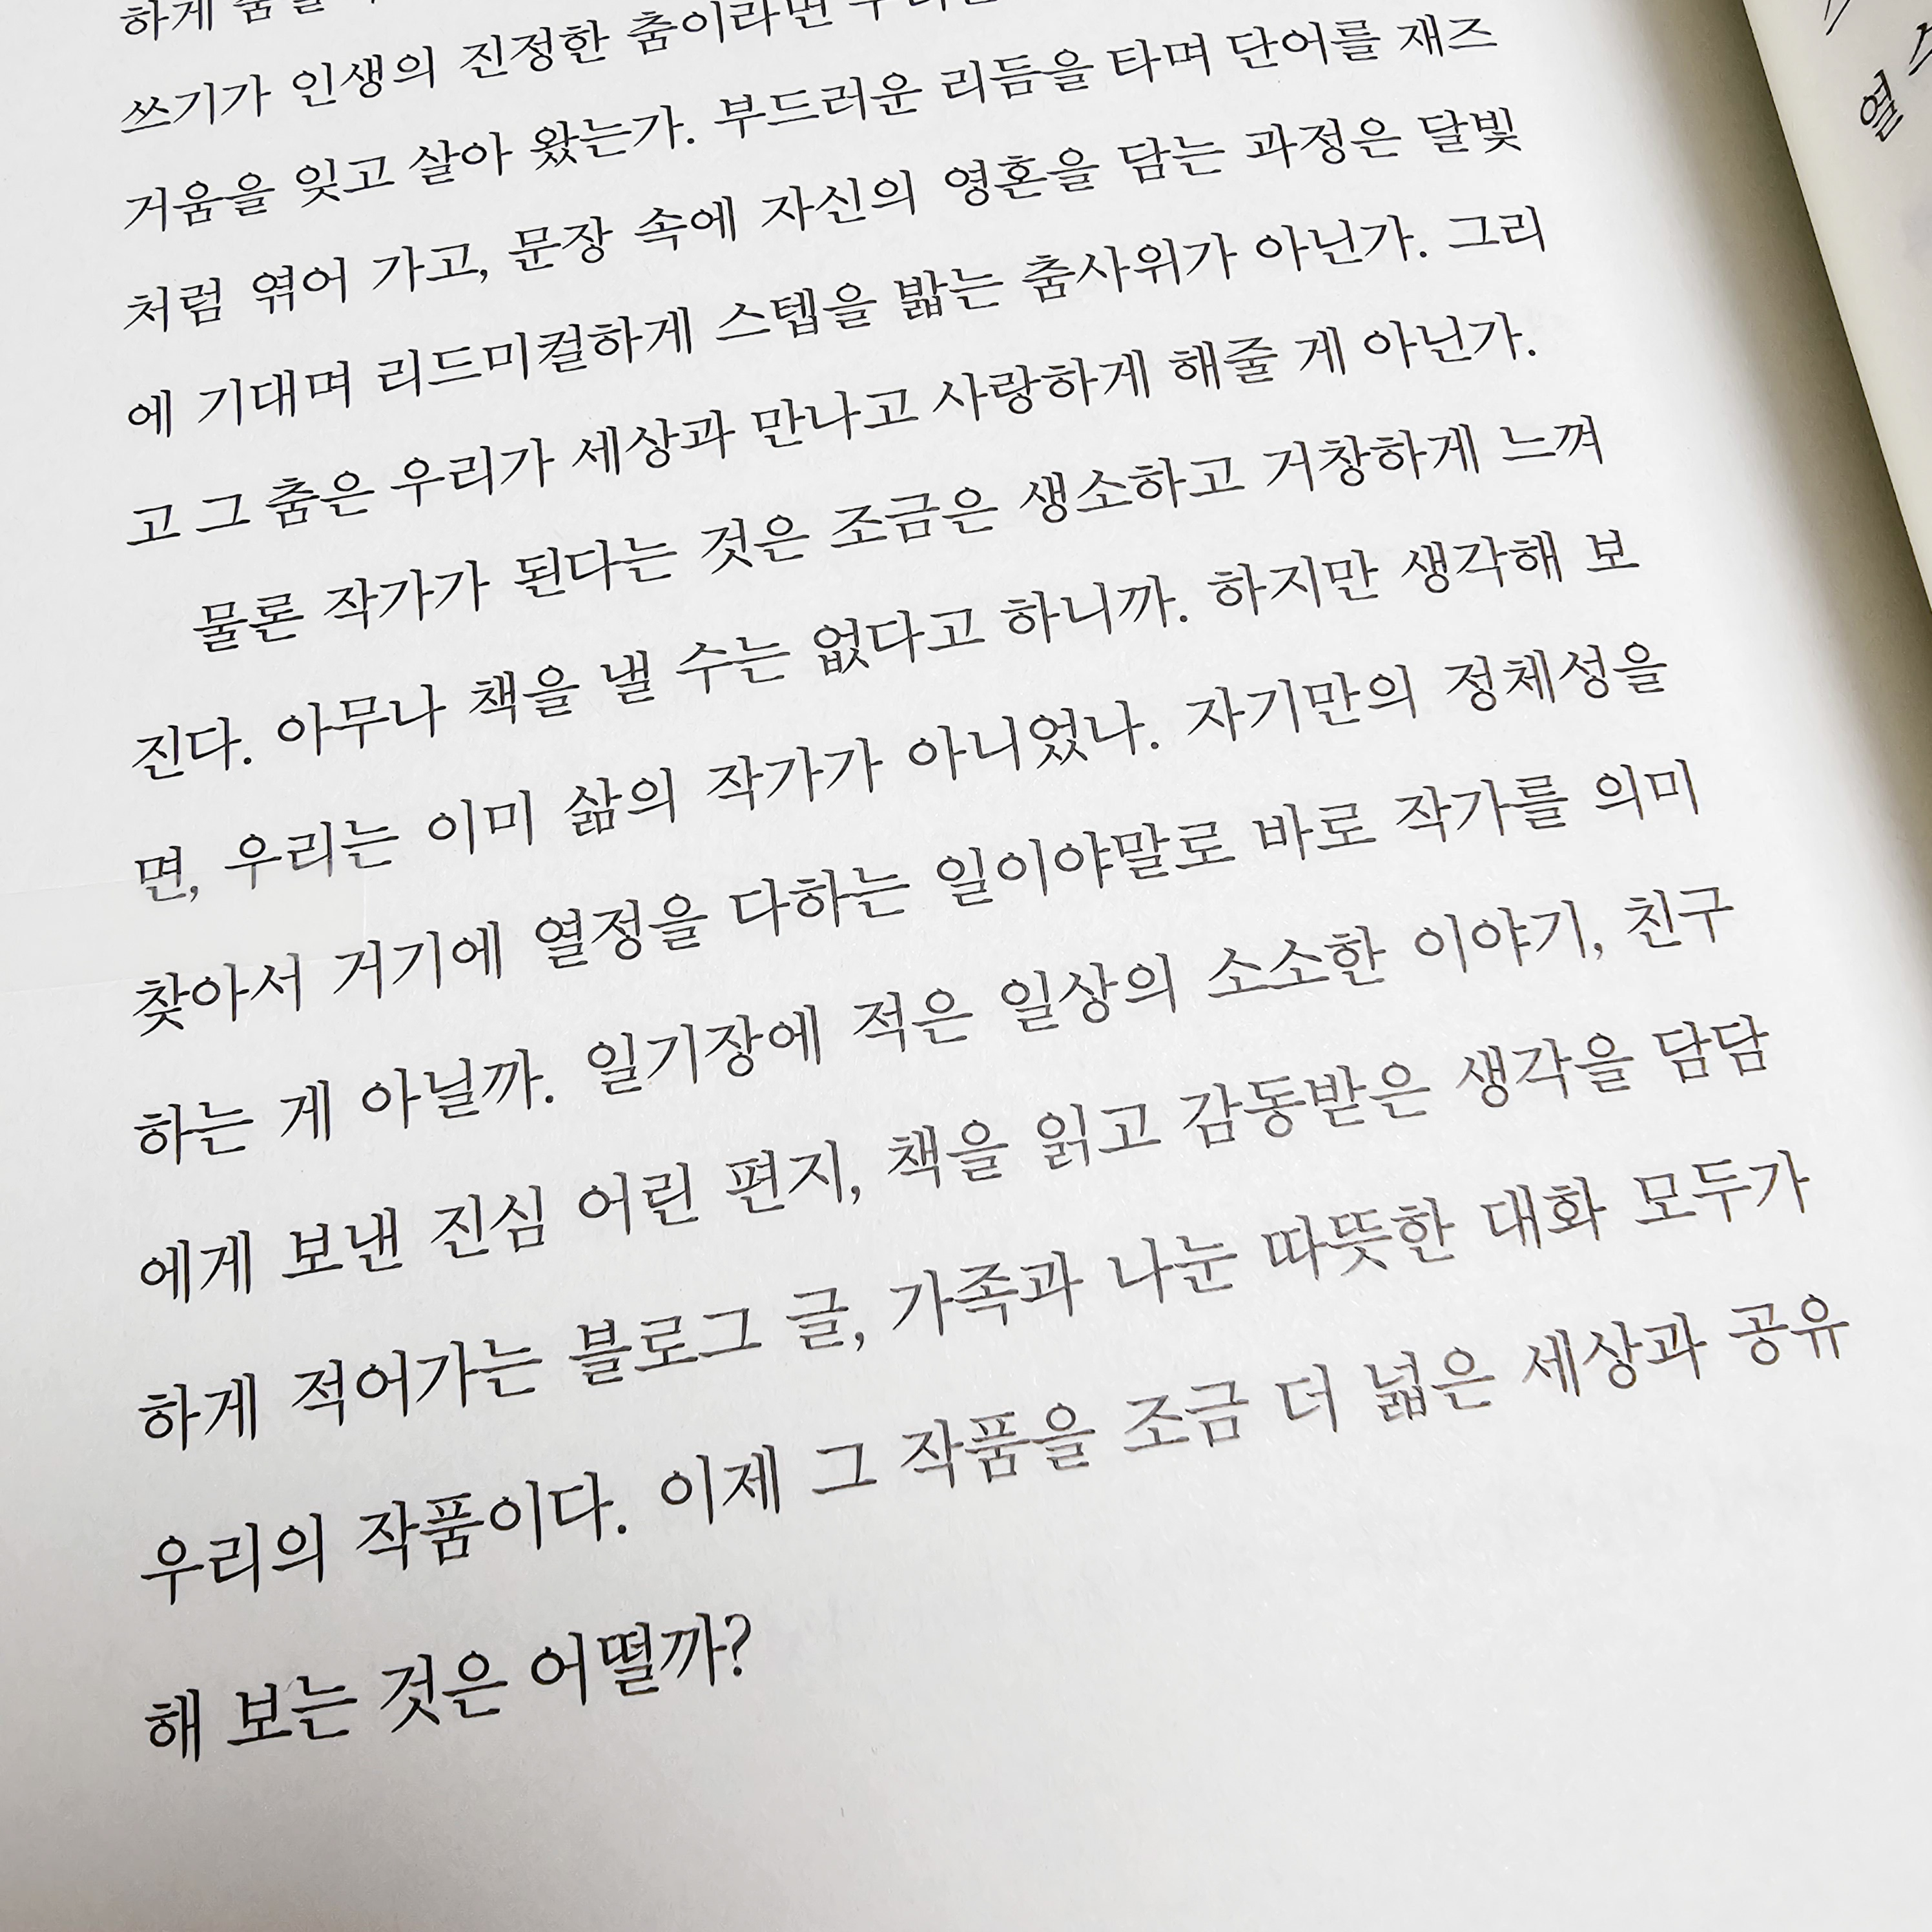 하게 춤을
쓰기가 인생의 진정한 춤이라면
거움을 잊고 살아 왔는가. 부드러운 리듬을 타며 단어를 재즈
처럼 엮어 가고, 문장 속에 자신의 영혼을 담는 과정은 달빛
에 기대며 리드미컬하게 스텝을 밟는 춤사위가 아닌가. 그리
고 그 춤은 우리가 세상과 만나고 사랑하게 해줄 게 아닌가.
물론 작가가 된다는 것은 조금은 생소하고 거창하게 느껴
진다. 아무나 책을 낼 수는 없다고 하니까. 하지만 생각해 보
면, 우리는 이미 삶의 작가가 아니었나. 자기만의 정체성을
찾아서 거기에 열정을 다하는 일이야말로 바로 작가를 의미
하는 게 아닐까. 일기장에 적은 일상의 소소한 이야기, 친구
에게 보낸 진심 어린 편지, 책을 읽고 감동받은 생각을 담담
하게 적어가는 블로그 글, 가족과 나눈 따뜻한 대화 모두가
우리의 작품이다. 이제 그 작품을 조금 더 넓은 세상과 공유
해 보는 것은 어떨까?
열